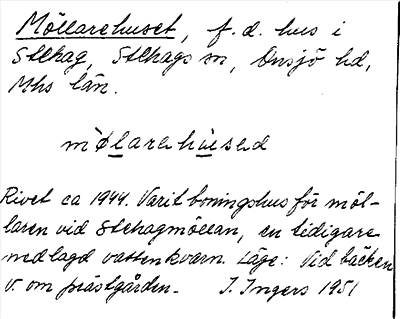 Möllarehuset, f.d. hus i
Stehag, Stehags sn, Onsjö hd,
Mhs län.
mø̀larehùsəd
Rivet ca 1944. Varit boningshus för möl-
laren vid Stehagmöllan, en tidigare
nedlagd vattenkvarn. Läge: Vid bäcken
v. om prästgården. I. Ingers 1951